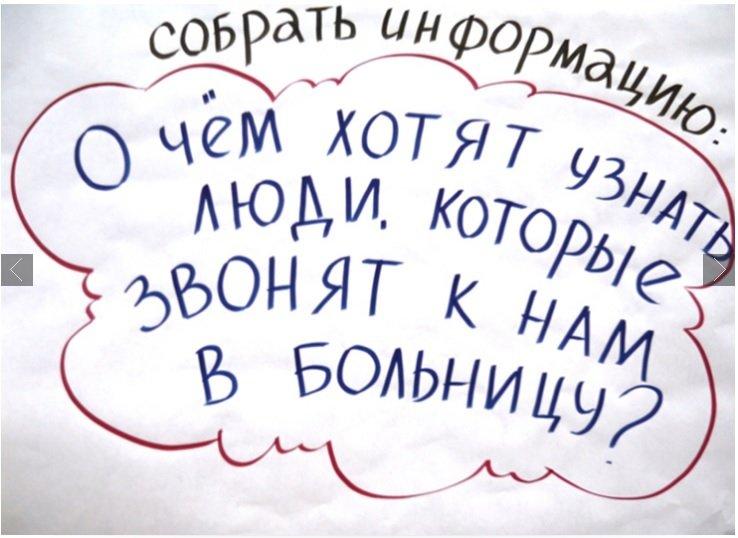 собрать информацию:
О чём хотят узнать
люди. которые
звонят к нам
в больницу?